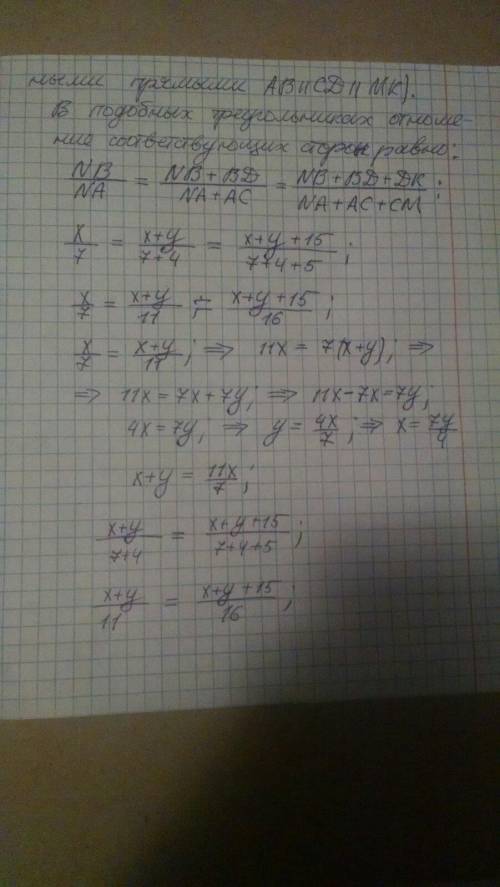 ными прямыми AB||CD||MK).
В подобных треугольниках отноше-
ние соответствующих сторон равно:
NB/NA = (NB+BD)/(NA+AC) = (NB+BD+DK)/(NA+AC+CM);
x/7 = (x+y)/(7+4) = (x+y+15)/(7+4+5);
x/7 = (x+y)/11 = (x+y+15)/16;
x/7 = (x+y)/11; ⇒ 11x = 7(x+y); ⇒
⇒ 11x = 7x+7y; ⇒ 11x-7x=7y;
4x=7y; ⇒ y = 4x/7; ⇒ x = 7y/4
x+y = 11x/7;
(x+y)/(7+4) = (x+y+15)/(7+4+5);
(x+y)/11 = (x+y+15)/16;